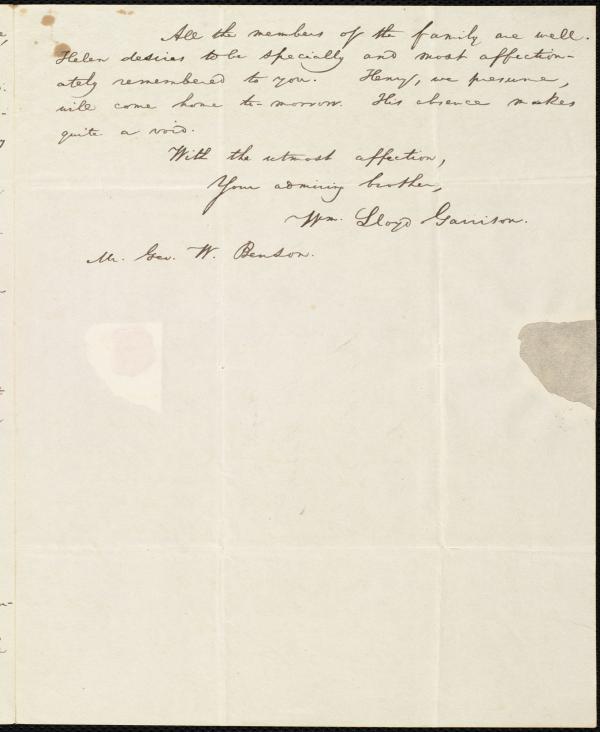 All the members of the family are well.
Helen desires to be specially and most affection-
ately remembered to you. Henry, we presume,
will come home to-morrow. His absence makes
quite a void.
With the utmost affection,
Your admiring brother,
Wm. Lloyd Garrison.
Mr. Geo. W. Benson.